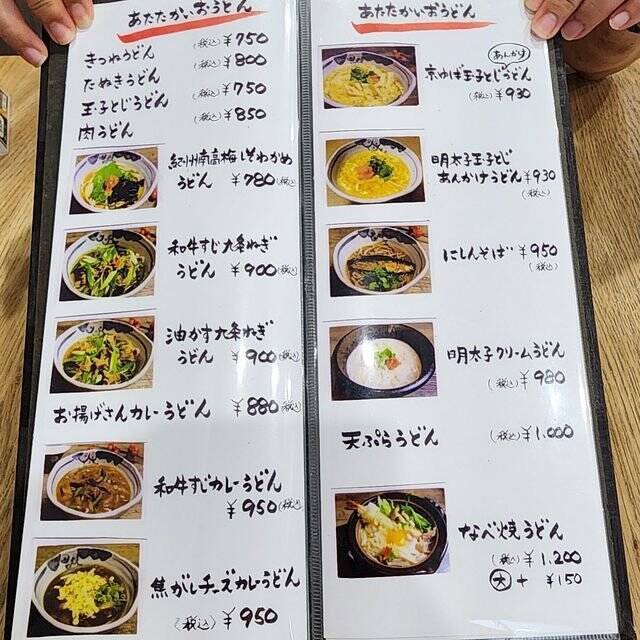 あたたかいおうどん
きつねうどん (税込)¥750
たぬきうどん (税込)¥800
玉子とじうどん (税込)¥750
肉うどん (税込)¥850
紀州南高梅しそわかめ
うどん ¥780(税込)
和牛すじ九条ねぎ
うどん ¥900(税込)
油かす九条ねぎ
うどん ¥900(税込)
お揚げさんカレーうどん ¥880(税込)
和牛すじカレーうどん
¥950(税込)
焦がしチーズカレーうどん
(税込)¥950
あたたかいおうどん
あんかけ
京ゆば玉子とじうどん
(税込)¥930
明太子玉子とじ
あんかけうどん¥930
(税込)
にしんそば ¥950
(税込)
明太子クリームうどん
(税込)¥980
天ぷらうどん (税込)¥1.000
なべ焼うどん
(税込)¥1.200
大 + ¥150